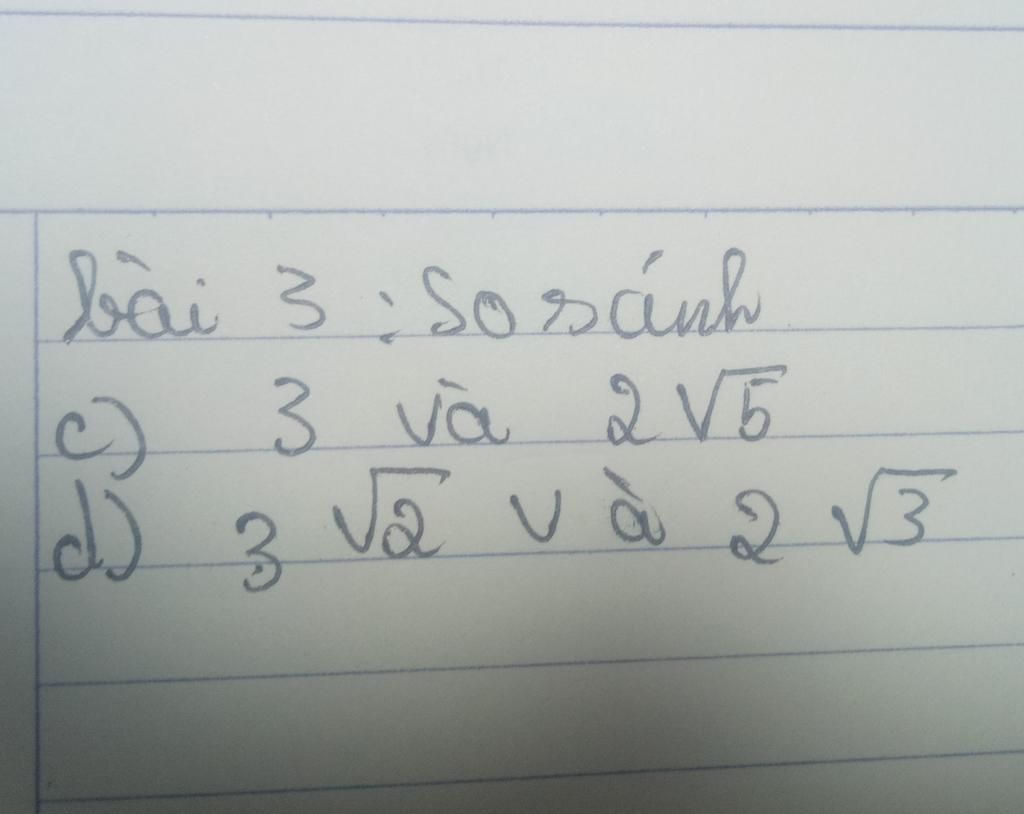 bài 3 : So sánh
c) 3 và 2√5
d) 3√2 và 2√3